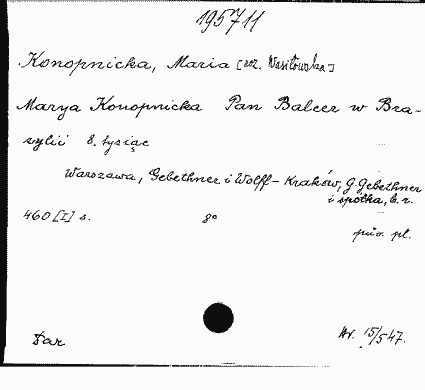 195711
Konopnicka, Maria [roz. Wasiłowska]
Marya Konopnicka Pan Balcer w Bra-
zylii 8. tysiąc
Warszawa, Gebethner i Wolff - Kraków, G. Gebethner
i spółka, b. r.
460 [I] s. 8°
piśm. pl.
Dar Nr. 15/547.